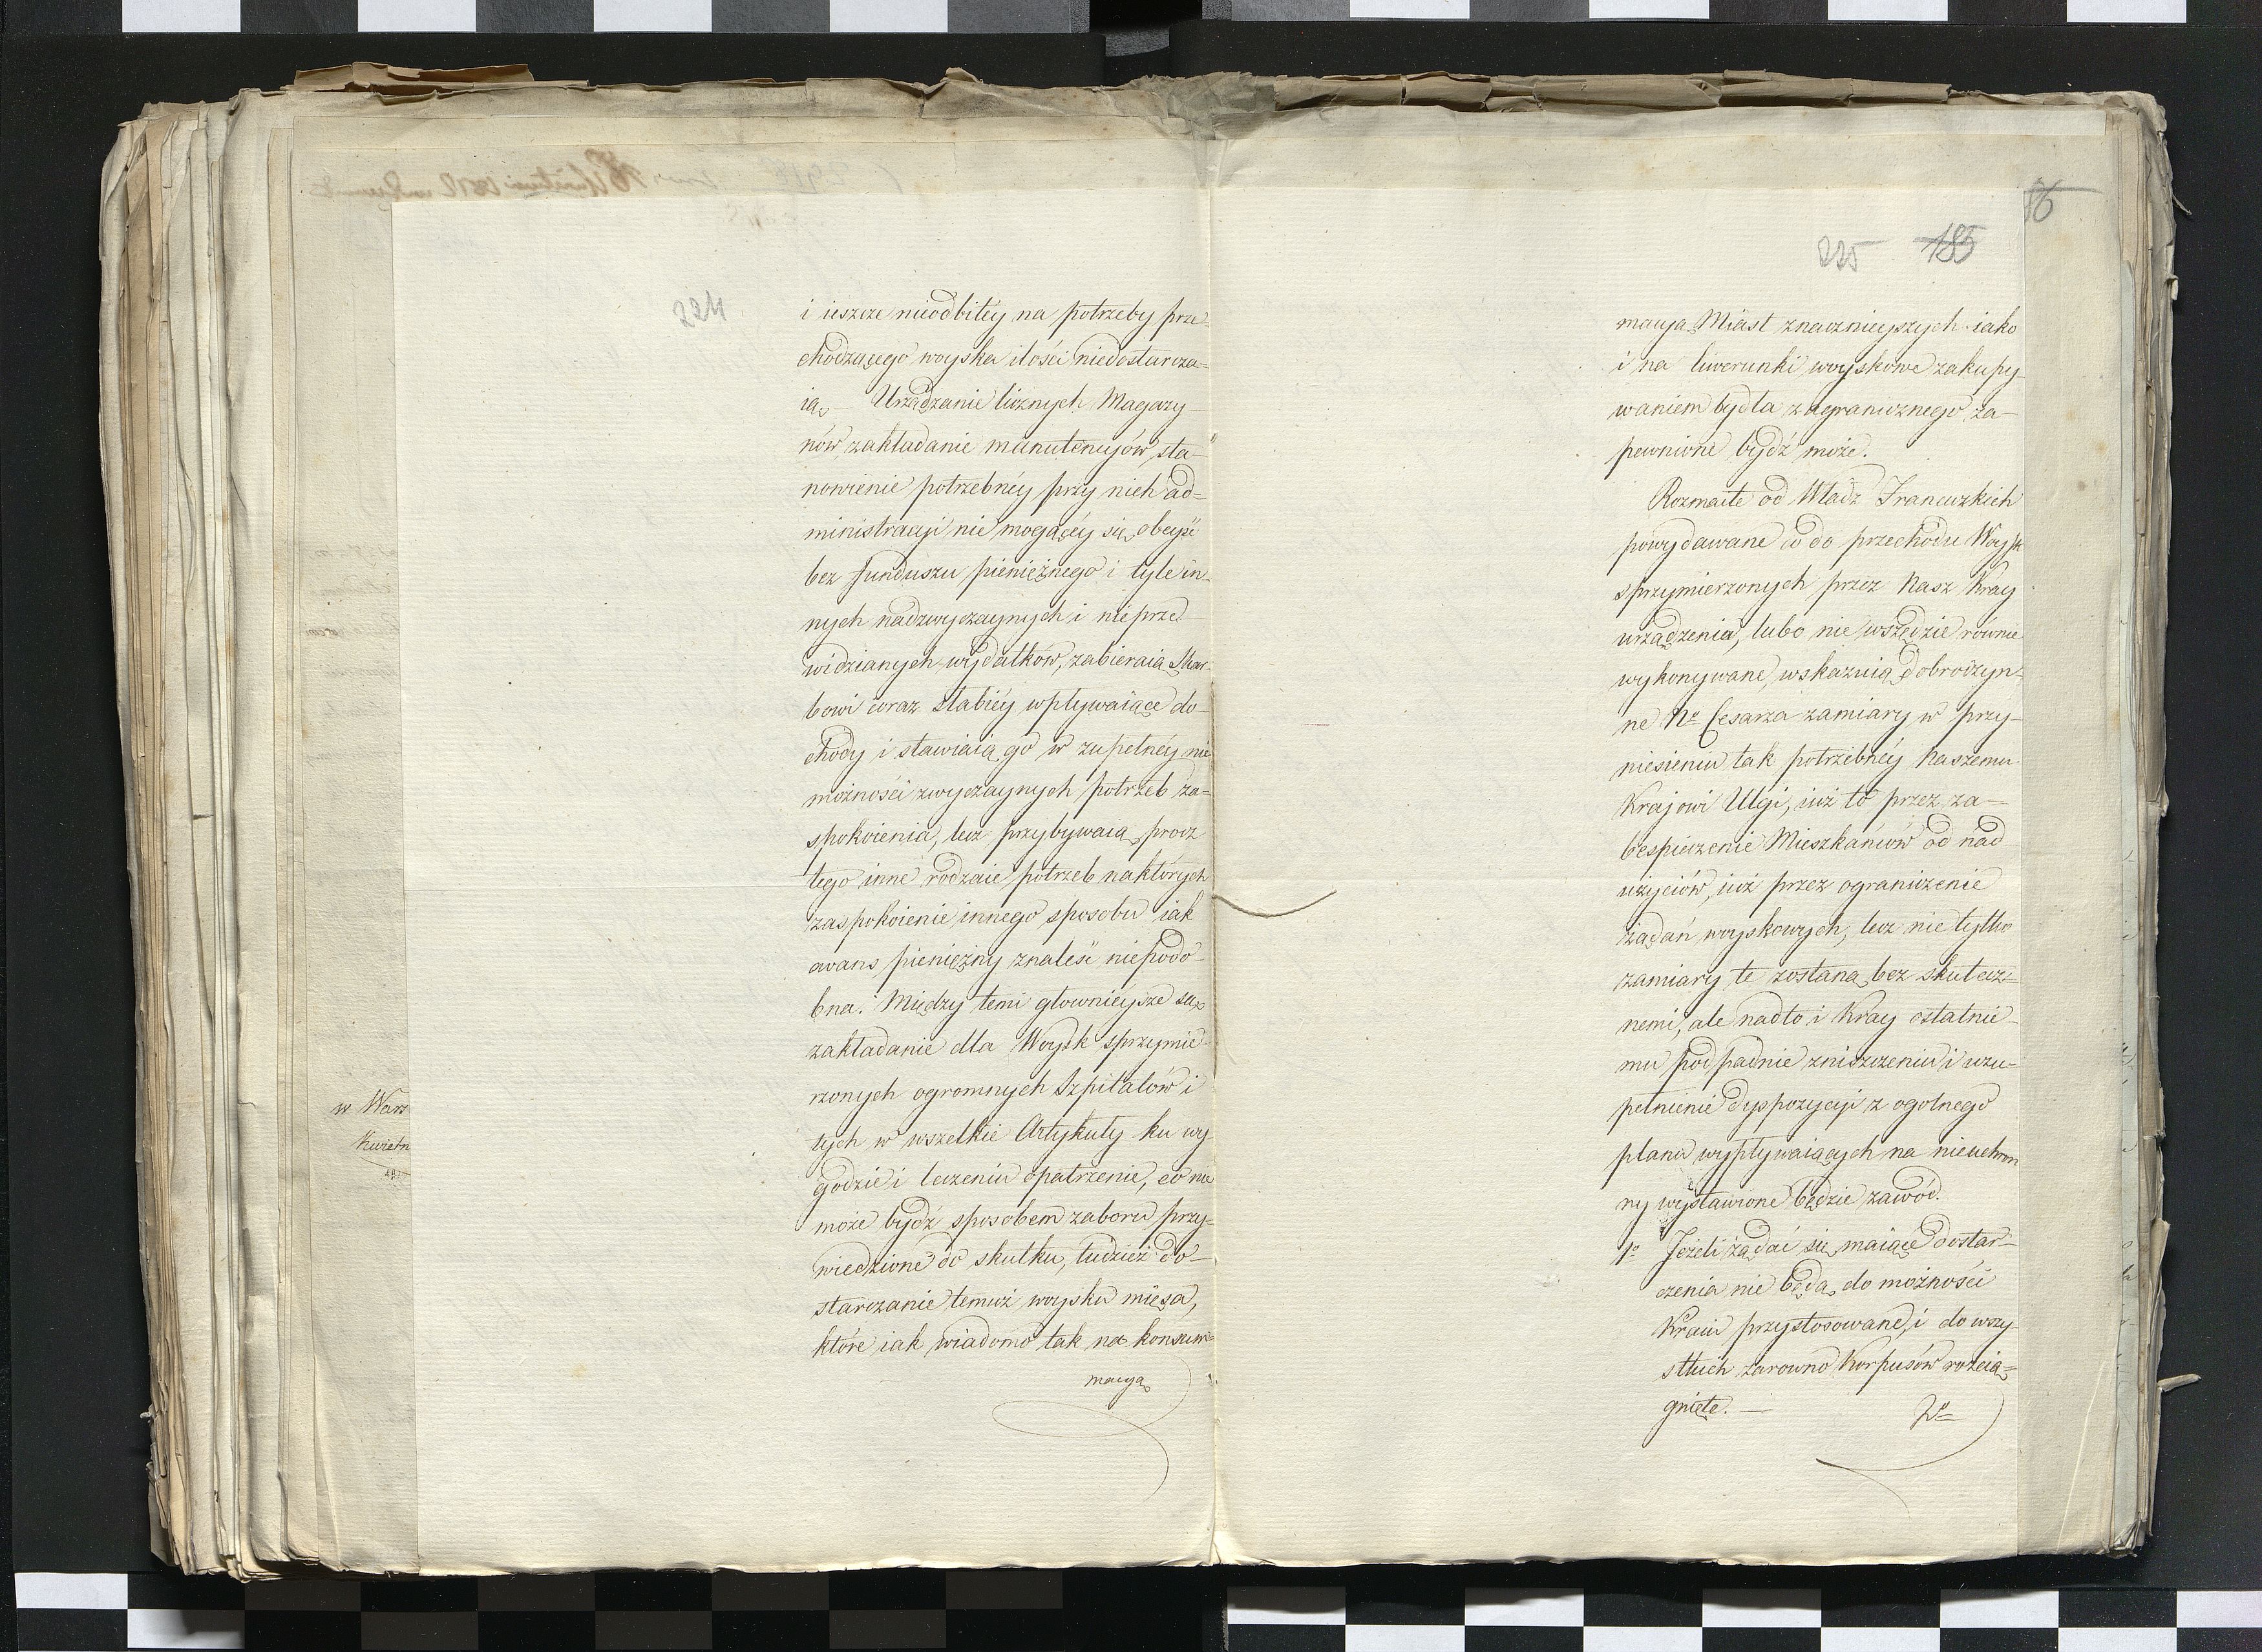 224
i ieszcze nieodbitéy na potrzeby prze-
chodzącego woyska ilości niedostarcza=
ią, – Urządzanie licznych Magazy-
nów, zakładanie manutencyów, sta-
nowienie potrzebnéy przy nich ad=
ministracyi nie mogącéy się obeyść
bez funduszu pieniężnego i tyle in-
nych nadzwyczaynych i nieprze-
widzianych wydatków, zabieraią Skar-
bowi coraz słabiéy wpływaiące do-
chody i stawiaią go w zupełnéy nie
możności zwyczaynych potrzeb za=
spokoienia, lecz przybywaią procz
tego inne rodzaie potrzeb na których
zaspokoienie innego sposobu iak
avans pieniężny znaleść niepodo-
bna. Między temi głownieysze są,
zakładanie dla Woysk sprzymie-
rzonych ogromnych Szpitalów i
tych w wszelkie Artykuły ku wy-
godzie i leczeniu opatrzenie, co nie
może bydź sposobem zaboru przy-
wiedzione do skutku, tudzież do-
starczanie temuż woysku mięsa,
które iak wiadomo tak na konsum-
macyą
w Warz
Kwietn
86
225 185
macyą Miast znacznieyszych iako
i na liwerunki woyskowe zakupy-
waniem bydła zagranicznego za-
pewnione bydź może.
Rozmaite od Władz Francuzkich
powydawane co do przechodu Woysk
sprzymierzonych przez Nasz Kray
urządzenia, lubo nie wszędzie równie
wykonywane, wskazuią dobroczyn-
ne No Cesarza zamiary w przy-
niesieniu tak potrzebnéy Naszemu
Krajowi Ulgi, iuż to przez za-
bespieczenie Mieszkańców od nad
użyciów, iuż przez ograniczenie
żądań woyskowych, lecz nie tylko
zamiary te zostaną bez skutecz-
nemi, ale nadto i Kray ostatnie-
mu podpadnie zniszczeniu i uzu-
pełnienie dyspozycyi z ogolnego
planu wypływaiących na nieuchron
ny wystawione będzie zawód.
1o Jeżeli żądać się maiące dostar-
czenia nie będą do możności
Kraiu przystosowane, i do wszy-
stkich zarowno Korpusów rozcią=
gnięte. —
2o